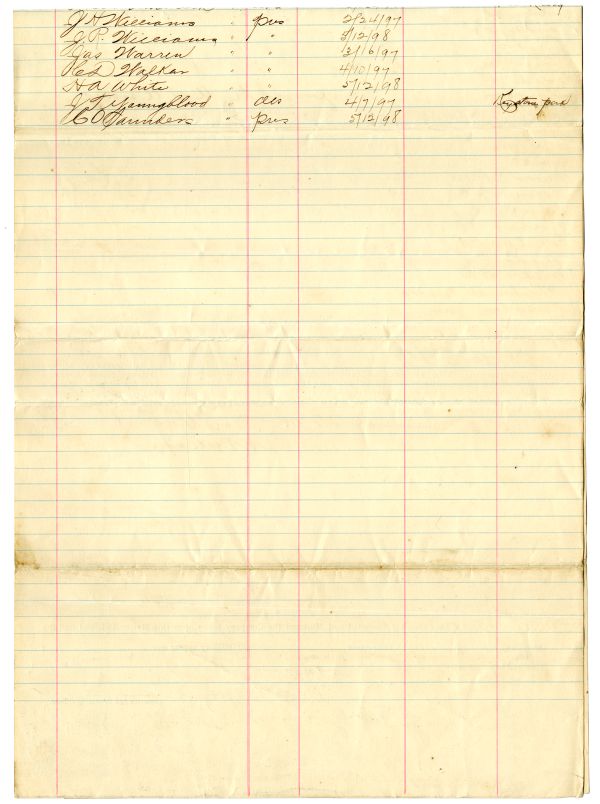 J H Williams " pres 2/24/97
J. P. Williams " " 5/12/98
Jas Warren " " 12/16/97
Ed Walker " " 4/10/97
H A White " " 5/12/98
J T Youngblood " des 4/7/97
C O Saunders " pres 5/12/98